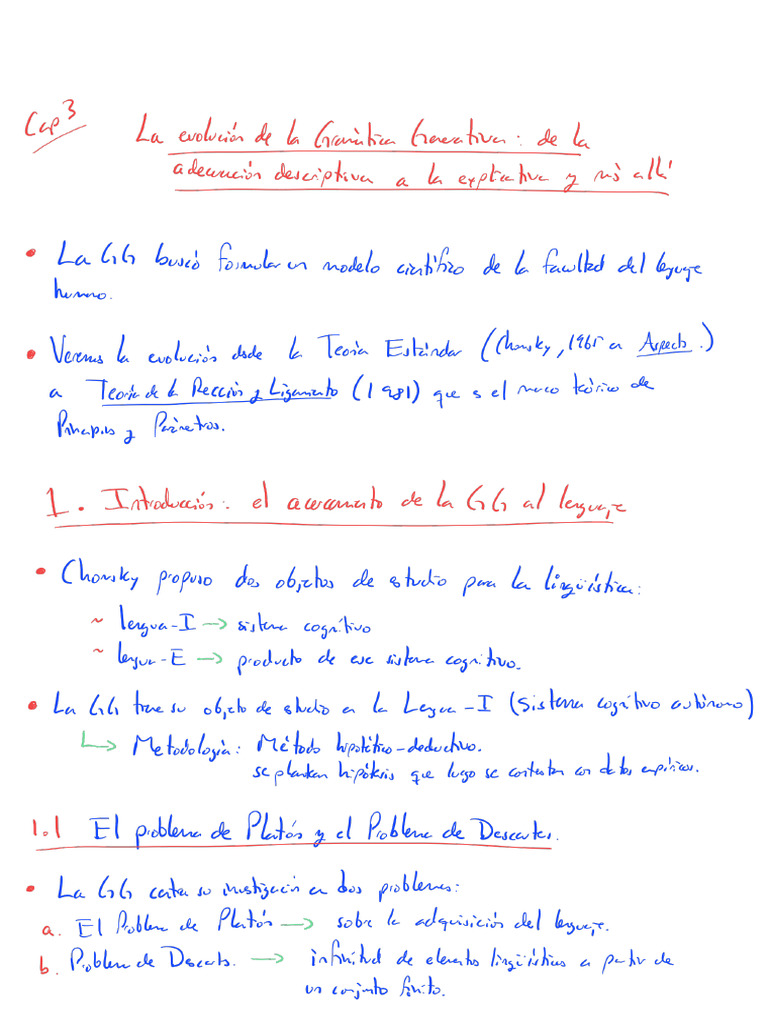 Cap 3
La evolución de la Gramática Generativa: de la
adecuación descriptiva a la explicativa y más allá
• La GG buscó formular un modelo científico de la facultad del lenguaje
humano.
• Veremos la evolución desde la Teoría Estándar (Chomsky, 1965 en Aspects.)
a Teoría de la Rección y Ligamiento (1981) que es el marco teórico de
Principios y Parámetros.
1. Introducción: el acercamiento de la GG al lenguaje
• Chomsky propuso dos objetos de estudio para la lingüística:
~ lengua-I → sistema cognitivo
~ lengua-E → producto de ese sistema cognitivo.
• La GG tiene su objeto de estudio en la Lengua-I (sistema cognitivo autónomo)
↳ Metodología: Método hipotético-deductivo.
se plantean hipótesis que luego se contrastan con datos empíricos.
1.1 El problema de Platón y el Problema de Descartes.
• La GG centra su investigación en dos problemas:
a. El Problema de Platón → sobre la adquisición del lenguaje.
b. Problema de Descartes. → infinitud de elementos lingüísticos a partir de
un conjunto finito.